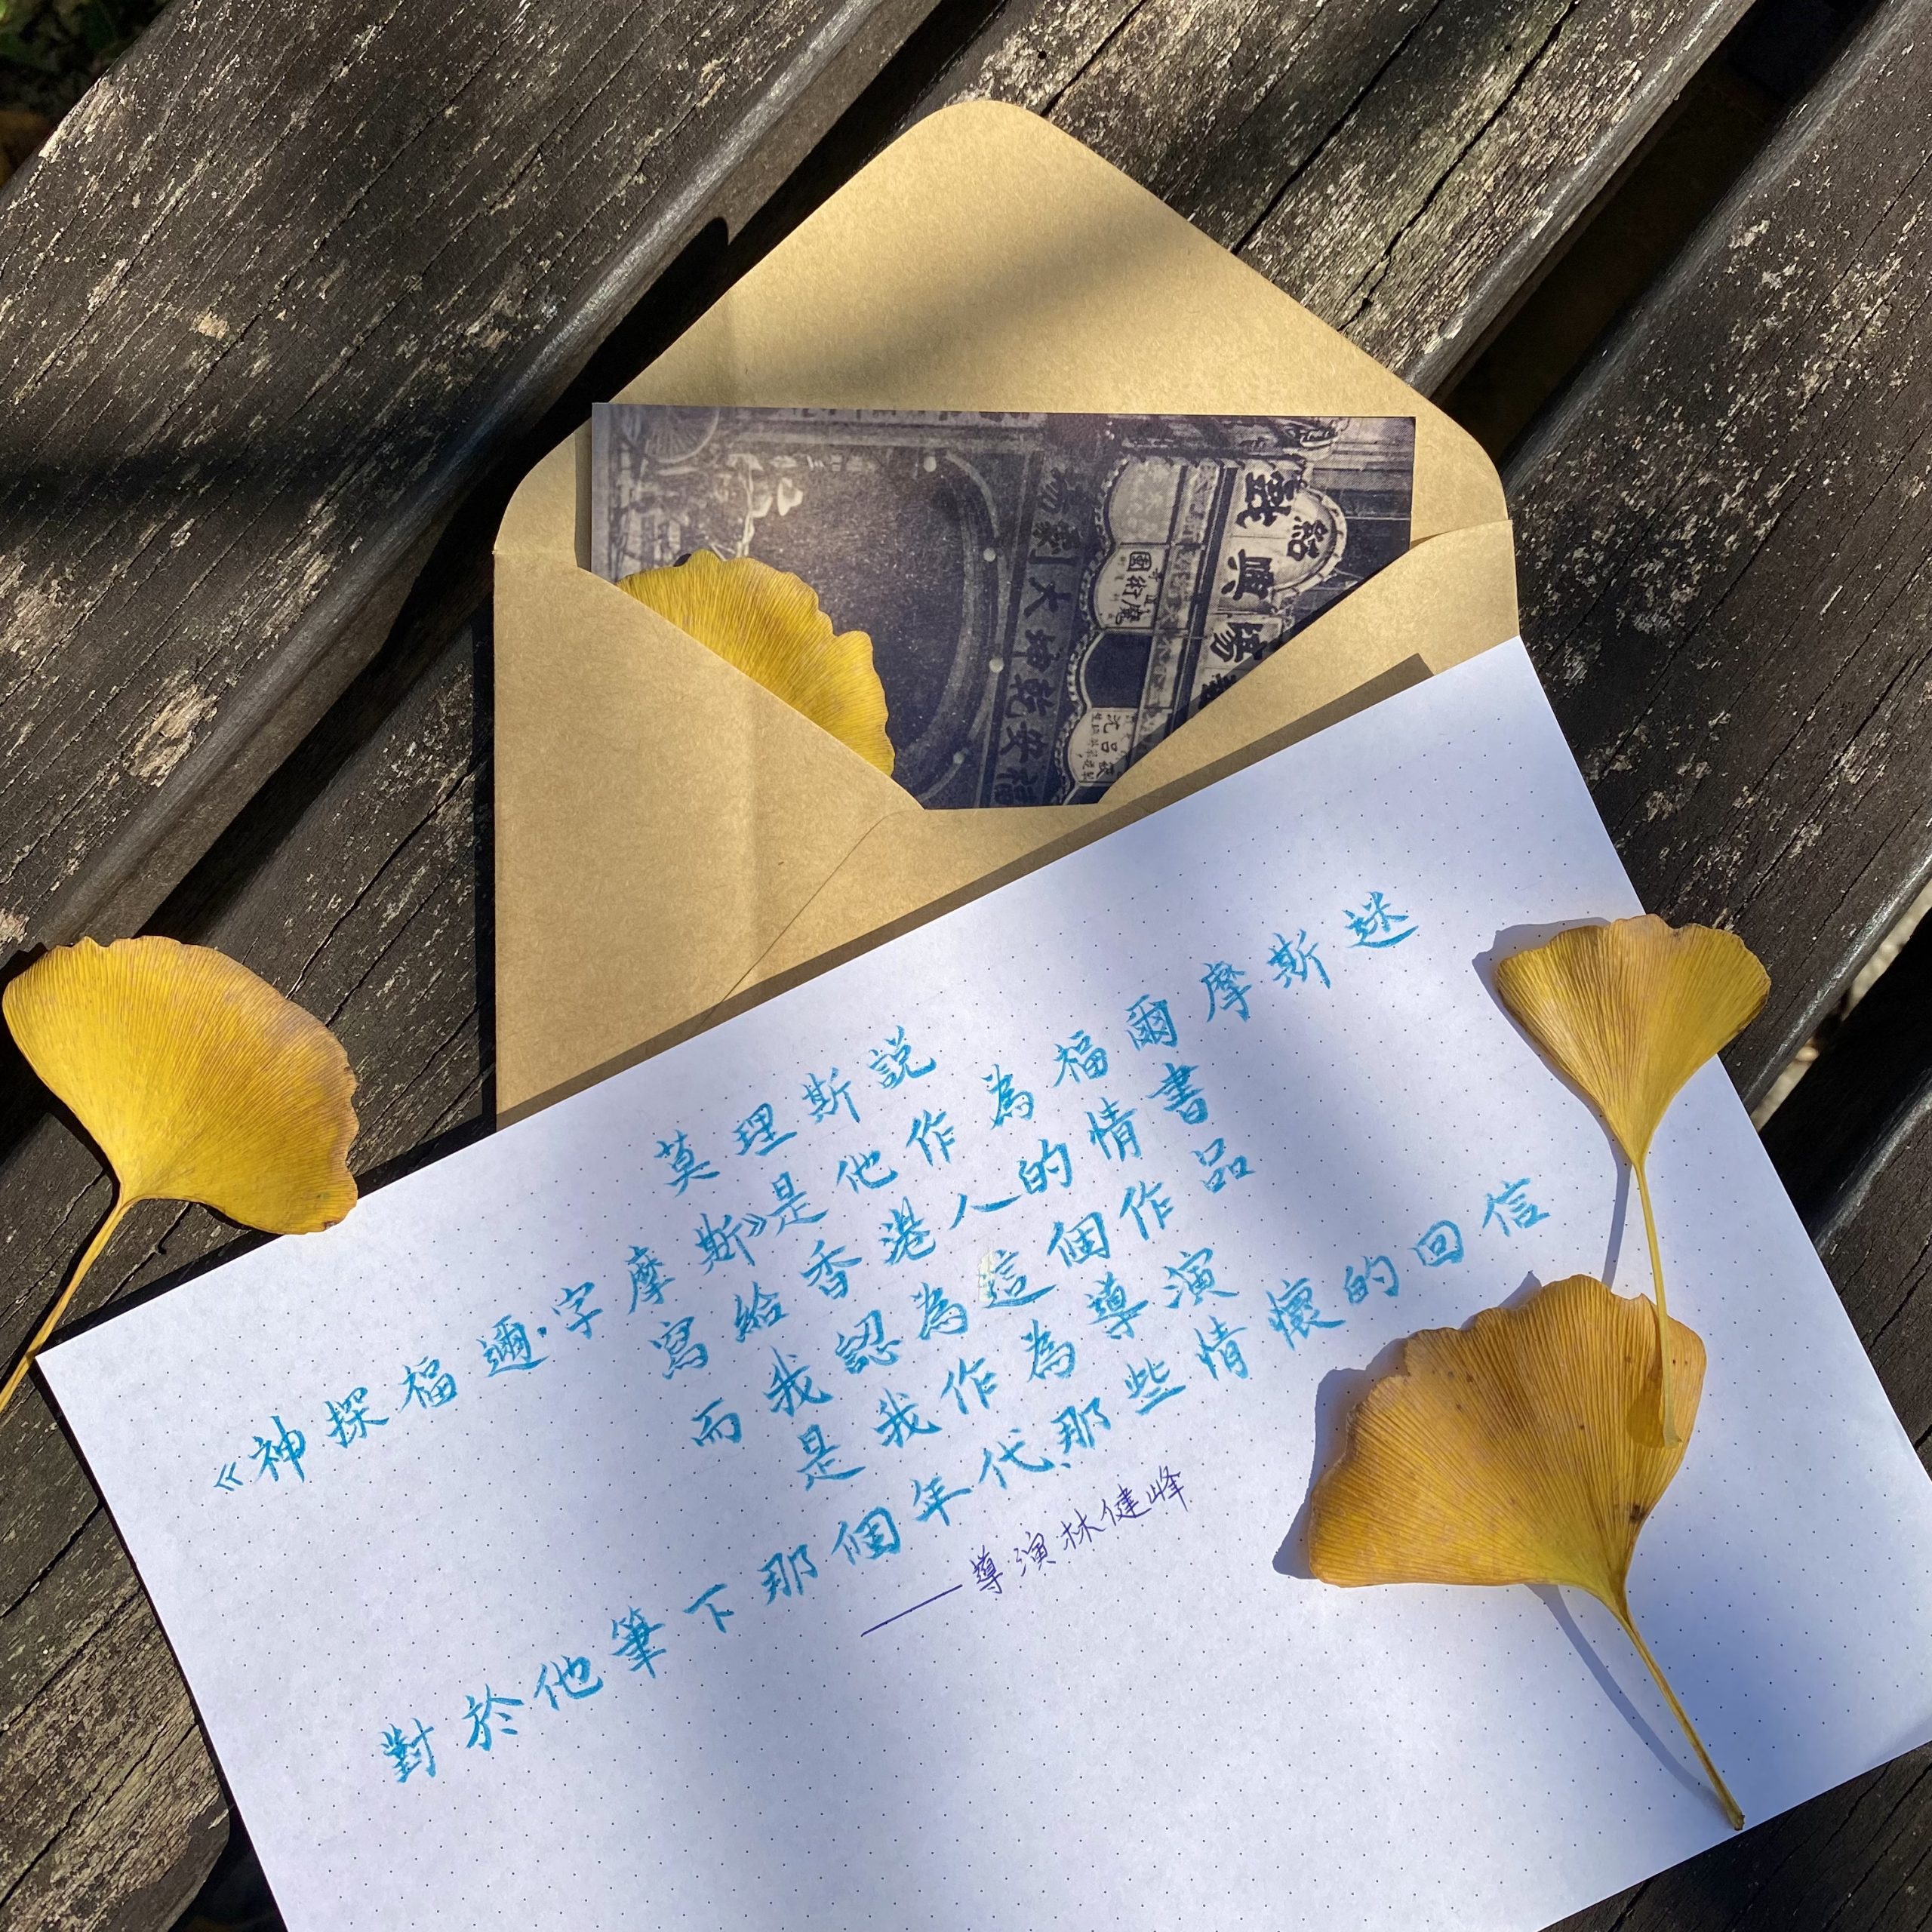 紹興戲
國術魔
福安乾坤大劇場
莫理斯説
《神探福邇·字摩斯》是他作為福爾摩斯迷
寫給香港人的情書
而我認為這個作品
是我作為導演
對於他筆下那個年代、那些情懷的回信
——導演林健峰